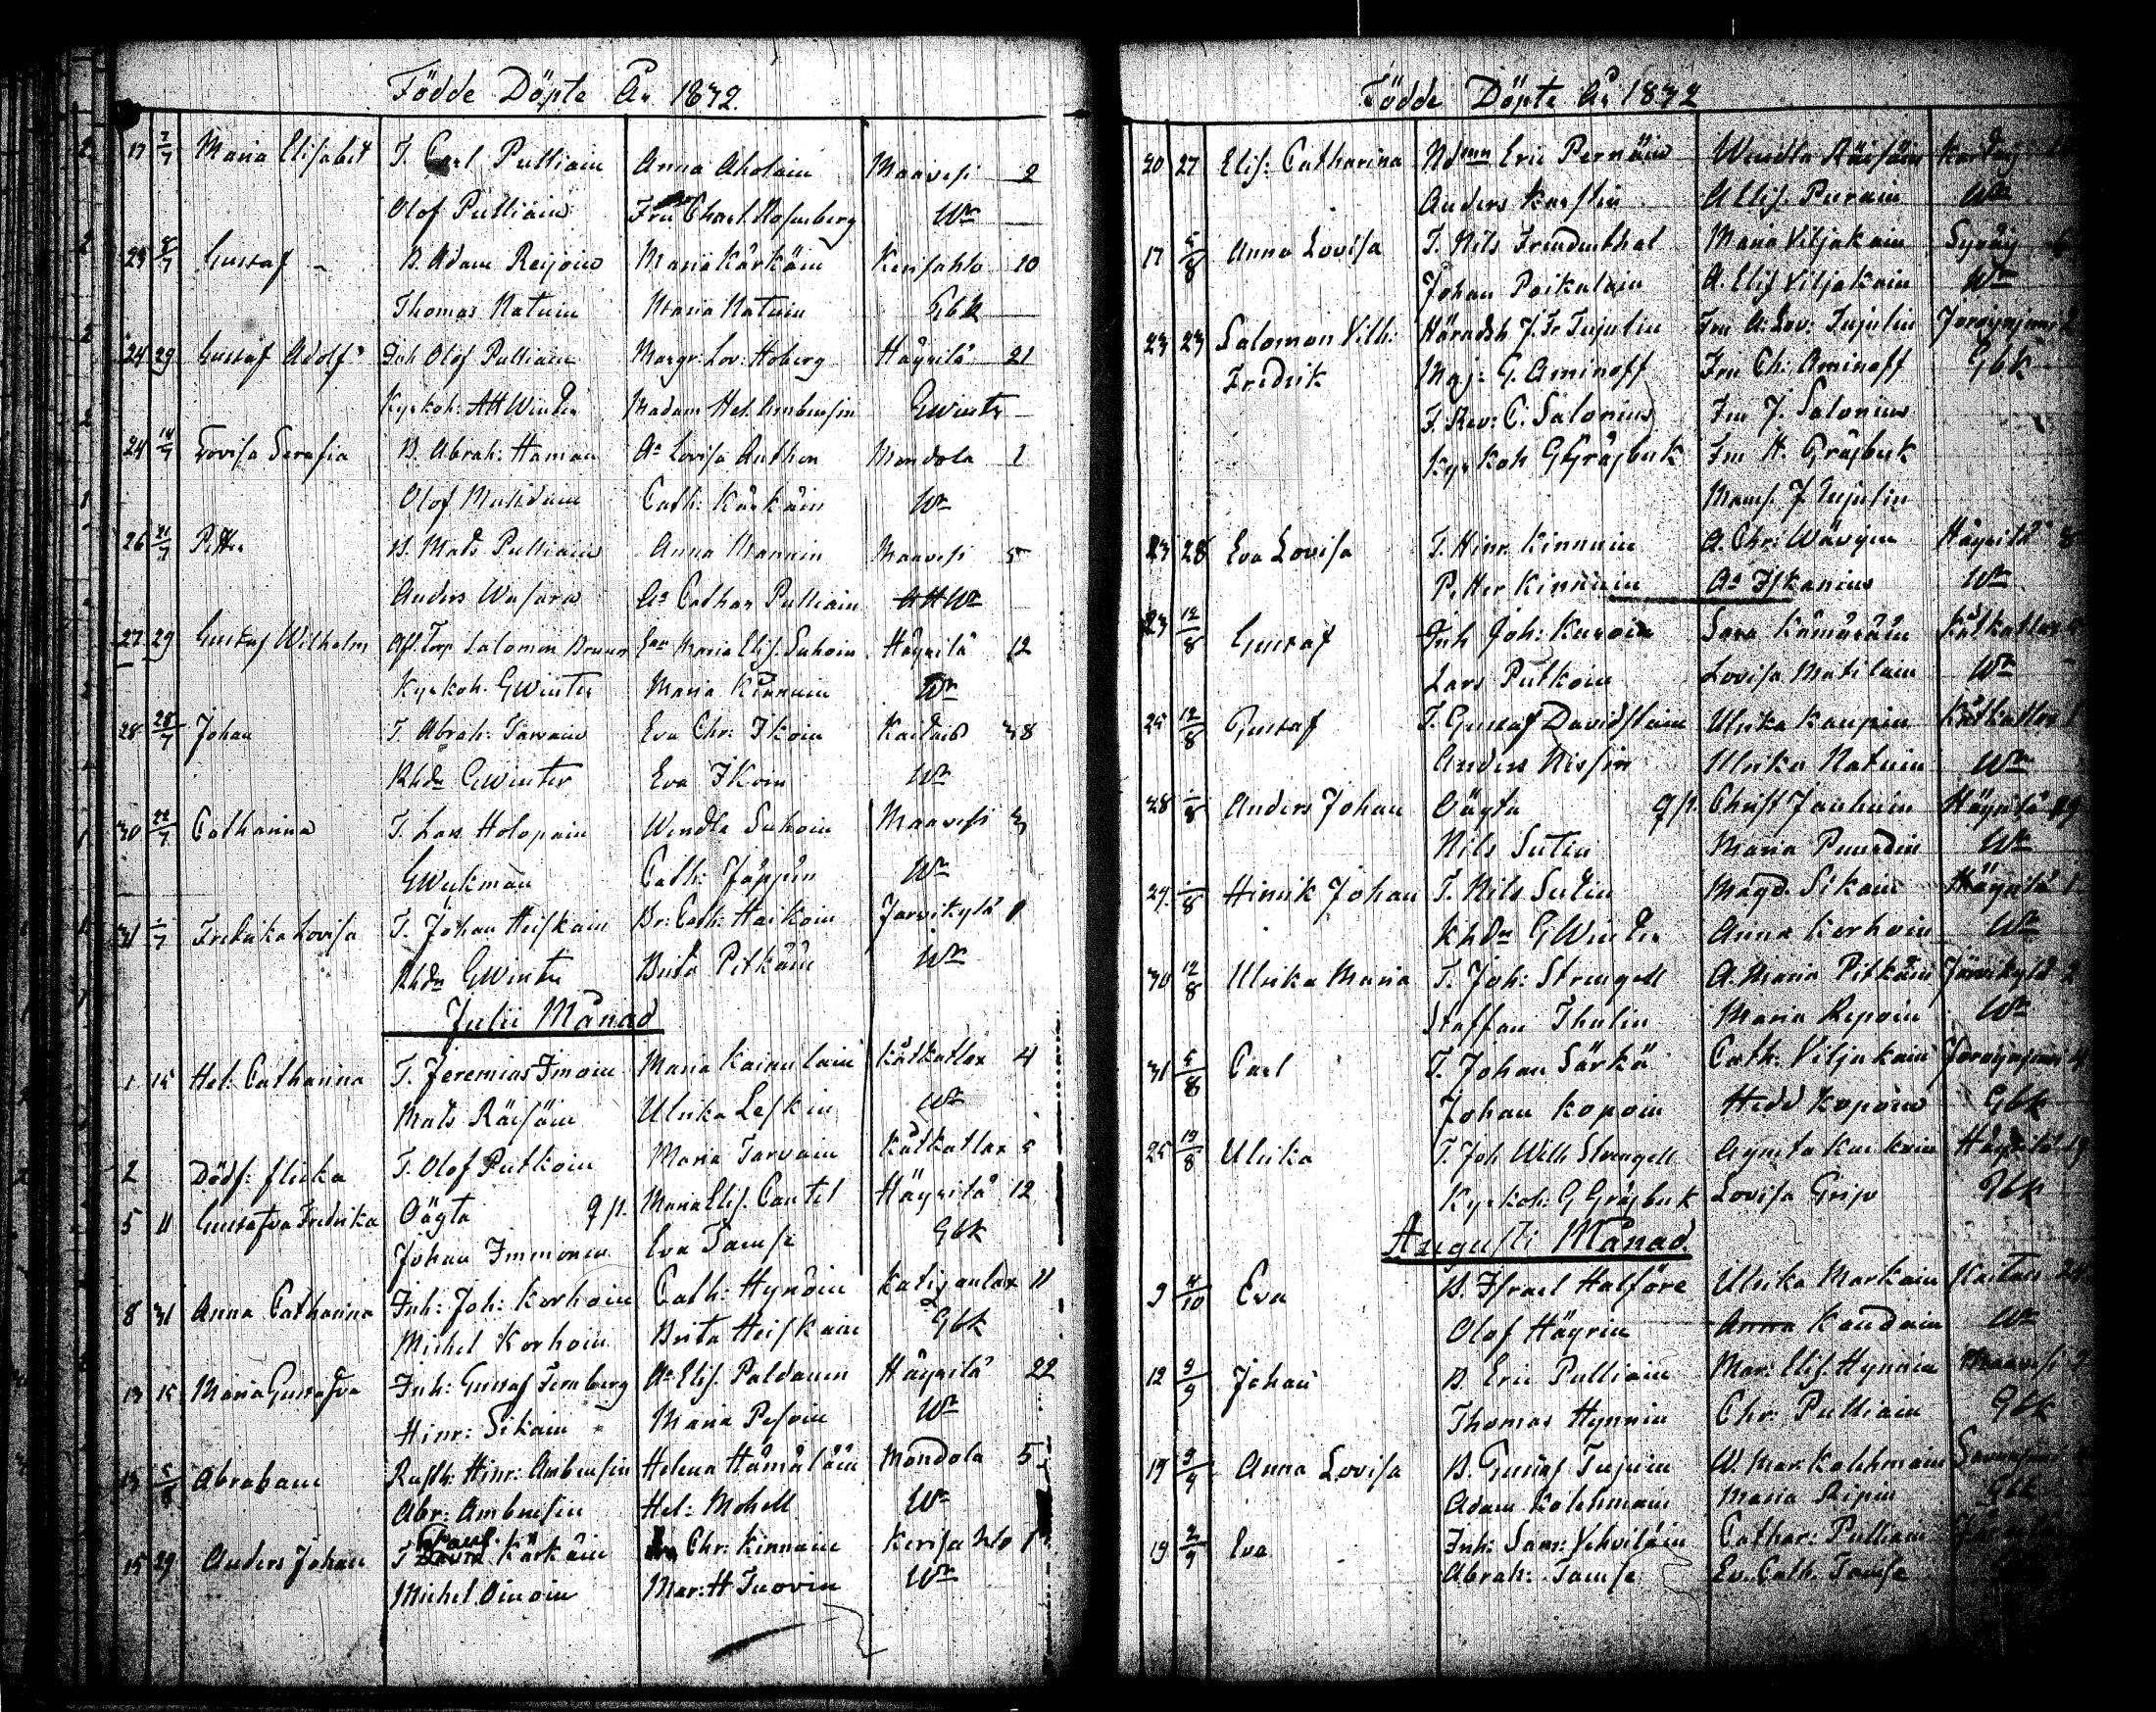 Födde Döpte År 1832.
17 7/7 Maria Elisabet T. Carl Pulliain Anna Aholain Maavesi 2
Olof Pulliain Fru Charl. Rosenberg Wr
Gustaf B. Adam Reijoin Maria Kärkäin Kerisalo 10
Thomas Natuin Maria Natuin GbK
24 29 Gustaf Adolf Inh Olof Pulliain Margr: Lov: Hoberg Häyrilä 21
Kyrkoh: AH Winter Madam Hel. Ambrusin GWinter
24 14/7 Lovisa Serafia B. Abrah: Haman Aa Lovisa Anthon Mondola 1
Olof Cath: Kärkäin Wr
26 21/7 Petter B. Mats Pulliain Anna Manuin Maavesi 5
Anders Aa Cathar Pulliain AHWr
27 29 Gustaf Wilhelm Afsk. Torp Salomon Bruun Maria Elis. Suhoin Häyrilä 12
Kyrkoh. GWinter Maria Kinnuin Wr
28 28/7 Johan T. Abrah: Tarvain Eva Chr: Ikoin Kaitais 38
Khdn GWinter Eva Ikoin Wr
30 22/7 Catharina T. Lars Holopain Wendla Suhoin Maavesi 3
GWickman Cath: Jäppin Wr
31 Fredrika Lovisa T. Johan Heiskain Br: Cath: Haikoin Jarvikylä 1
Khdn GWinter Brita Pitkäin Wr
Julii Månad
1 15 Hel: Catharina T. Jeremias Imoin Maria Kainulain Kätkatlax 4
Mats Räisäin Ulrika Leskin Wr
2 Dödf: flicka T. Olof Putkoin Maria Tarvain Kätkatlax 5
5 11 Gustafva Fredrika Oägta q.p. Maria Elis. Cantel Häyrilä 12
Johan Immonen Eva Tamse GbK
8 31 Anna Catharina Inh: Joh: Korhoin Cath: Hynöin 11
Michel Korhoin Brita Heiskain GbK
13 15 Maria Gustafva Inh: Gustaf Fernberg Aa Elis. Paldanin Häyrilä 22
Hinr: Sikain Maria Pesoin Wr
13 5/8 Abraham Rusth: Hinr: Ambrusin Helena Hämäläin Mondola 5
Abr: Ambrusin Hel: Mohell Wr
15 29 Anders Johan T. Kärkäin Chr: Kinnuin Kerisalo 1
Michel Oinoin Mar: H Tuovin Wr
Födde Döpte År 1832
20 27 Elis: Catharina Ndmn Eric Pernäin Wendla Räisäin
Anders Karstin A Elis. Purain Wr
17 5/8 Anna Lovisa T. Nils Freudenthal Maria Viljakain
Johan Poikalain A. Elis Viljakain Wr
23 23 Salomon Vilh: Häradsh J. Fr Tujulin Fru A: Lov: Tujulin
Fredrik Maj: G. Aminoff Fru Ch: Aminoff GbK
F. Rev: C. Salonius Fru J. Salonius
Kyrkoh G Gråsbeck Fru H. Gråsbeck
Mams. J Tujulin
23 28 Eva Lovisa T. Hinr Kinnuin A. Chr: Wäyryin Häyrilä 8
Petter Kinnuin Aa Iskanius Wr
23 12/8 Gustaf Inh Joh: Kuroin Sara Kämäräin Kätkatlax
Lars Putkoin Lovisa Matilain Wr
25 12/8 Gustaf T. Gustaf Davidslain Ulrika Kaupin Kätkatlax 1
Anders Nissin Ulrika Natuin Wr
28 Anders Johan Oägta q.p. Christ Jauhiain Häyrilä
Nils Sutin Maria Wr
29. Hinrik Johan T. Nils Sutin Magd. Sikain Häyrilä 1
Khdn GWinter Anna Korhoin Wr
30 12/8 Ulrika Maria T. Joh: Strengell A. Maria Pitkäin Järvikylä 2
Staffan Thulin Maria Repoin Wr
31 5/8 Carl T. Johan Särkä Cath: Viljakain
Johan Kopoin Hedd Kopoin GbK
25 19/8 Ulrika T. Joh Wilh Strengell Agneta Häyrilä
Kyrkoh: G Gråsbeck Lovisa Grip GbK
Augusti Månad
9 Eva B. Israel Halföre Ulrika Markain Kaitais
Olof Häyrin Anna Kaudain Wr
12 9/9 Johan B. Eric Pulliain Mar: Elis. Hynnin Maavesi
Thomas Hynnin Chr: Pulliain GbK
19 9/9 Anna Lovisa B. Gustaf Tujuin W. Mar: Kolehmain
Adam Kolehmain Maria Ripin GbK
19 2/9 Eva Inh: Sam: Vehviläin Cathar: Pulliain
Abrah: Tamse Ev. Cath. Tamse